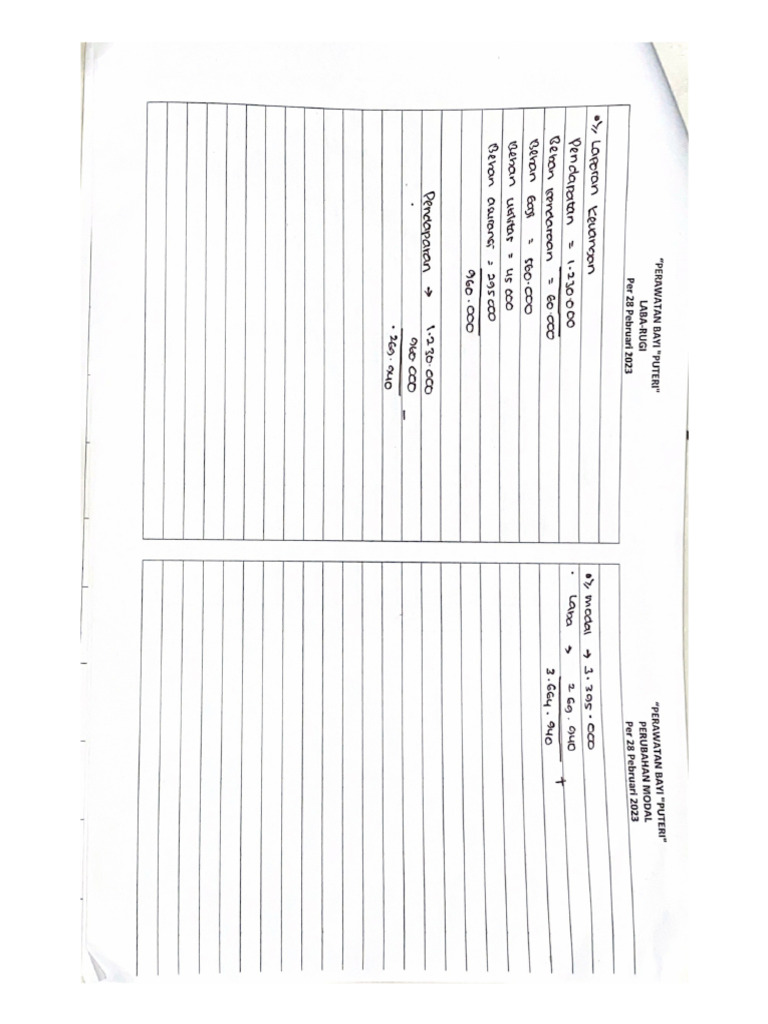 "PERAWATAN BAYI "PUTERI"
LABA-RUGI
Per 28 Pebruari 2023
Laporan Keuangan
Pendapatan = 1.230.000
Beban kendaraan = 60.000
Beban Gaji = 560.000
Beban utilitas = 45 000
Beban asuransi = 295 000
960.000
Pendapatan → 1.230.000
960 000 -
269.940
"PERAWATAN BAYI "PUTERI"
PERUBAHAN MODAL
Per 28 Pebruari 2023
modal → 3.395.000
Laba → 269.940 +
3.664.940